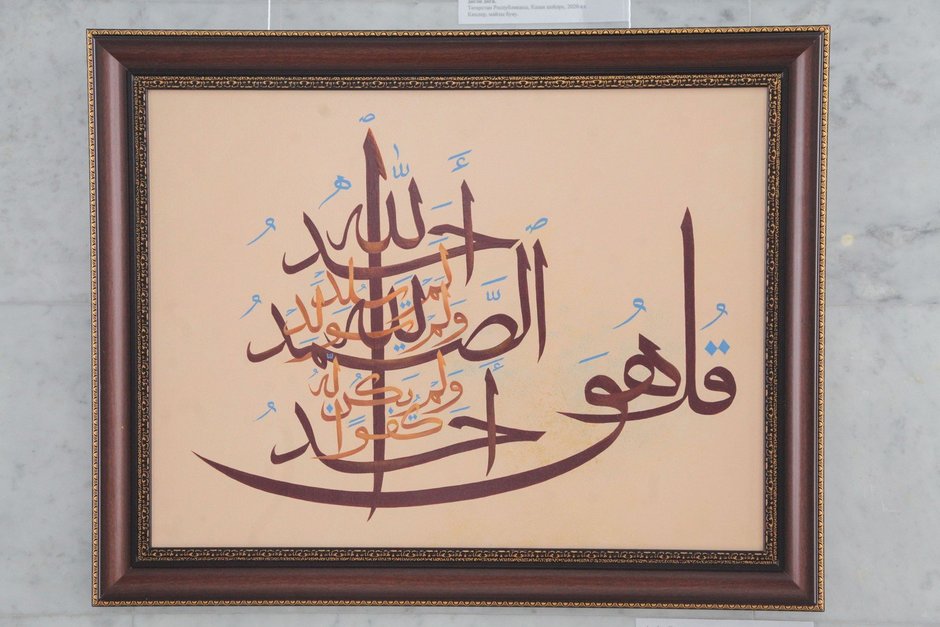 Татарстан Республикасы, Казан шәһәре, 2020 ел.
قُل هُوَ
اللّٰهُ أَحَدٌ
اللّٰهُ الصَّمَدُ
لم يلد
ولم يولد
ولم يكن له
كفوا أحد